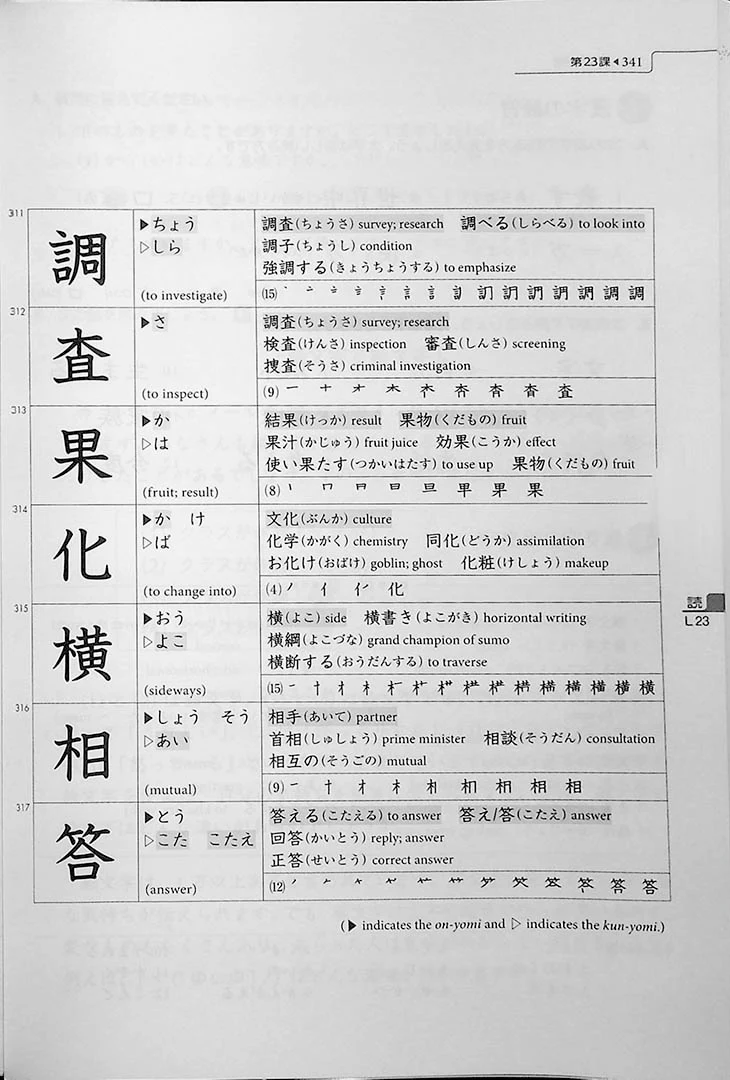 第23課◀341
311
調
▶ちょう
▷しら
(to investigate)
調査(ちょうさ) survey; research 調べる(しらべる) to look into
調子(ちょうし) condition
強調する(きょうちょうする) to emphasize
(15)
312
査
▶さ
(to inspect)
調査(ちょうさ) survey; research
検査(けんさ) inspection 審査(しんさ) screening
捜査(そうさ) criminal investigation
(9) 一 十 才 木 杢 杳 査
313
果
▶か
▷は
(fruit; result)
結果(けっか) result 果物(くだもの) fruit
果汁(かじゅう) fruit juice 効果(こうか) effect
使い果たす(つかいはたす) to use up 果物(くだもの) fruit
(8) 丨 冂 日 日 旦 甲 果 果
314
化
▶か け
▷ば
(to change into)
文化(ぶんか) culture
化学(かがく) chemistry 同化(どうか) assimilation
お化け(おばけ) goblin; ghost 化粧(けしょう) makeup
(4) ノ イ 化
315
横
▶おう
▷よこ
(sideways)
横(よこ) side 横書き(よこがき) horizontal writing
横綱(よこづな) grand champion of sumo
横断する(おうだんする) to traverse
(15)
316
相
▶しょう そう
▷あい
(mutual)
相手(あいて) partner
首相(しゅしょう) prime minister 相談(そうだん) consultation
相互の(そうごの) mutual
(9) 一 十 才 木 相 相
317
答
▶とう
▷こた こたえ
(answer)
答える(こたえる) to answer 答え/答(こたえ) answer
回答(かいとう) reply; answer
正答(せいとう) correct answer
(12)
(▶ indicates the on-yomi and ▷ indicates the kun-yomi.)
読
L23